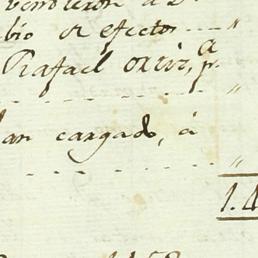 vendieron a
bio de efectos "
Rafael Ortiz, pª.
"
an cargado, á
"
1.4